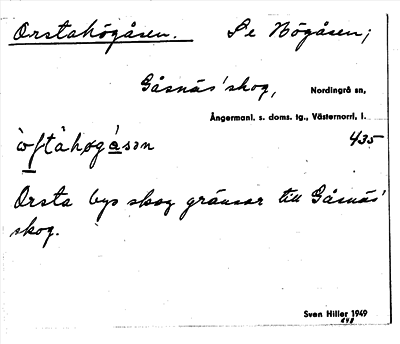 Orstahögåsen. Se Högåsen;
Gåsnäs' skog, Nordingrå sn,
Ångermanl. s. doms. tg., Västernorrl. l.
435
Orsta bys skog gränsar till Gåsnäs'
skog.
Sven Hiller 1949